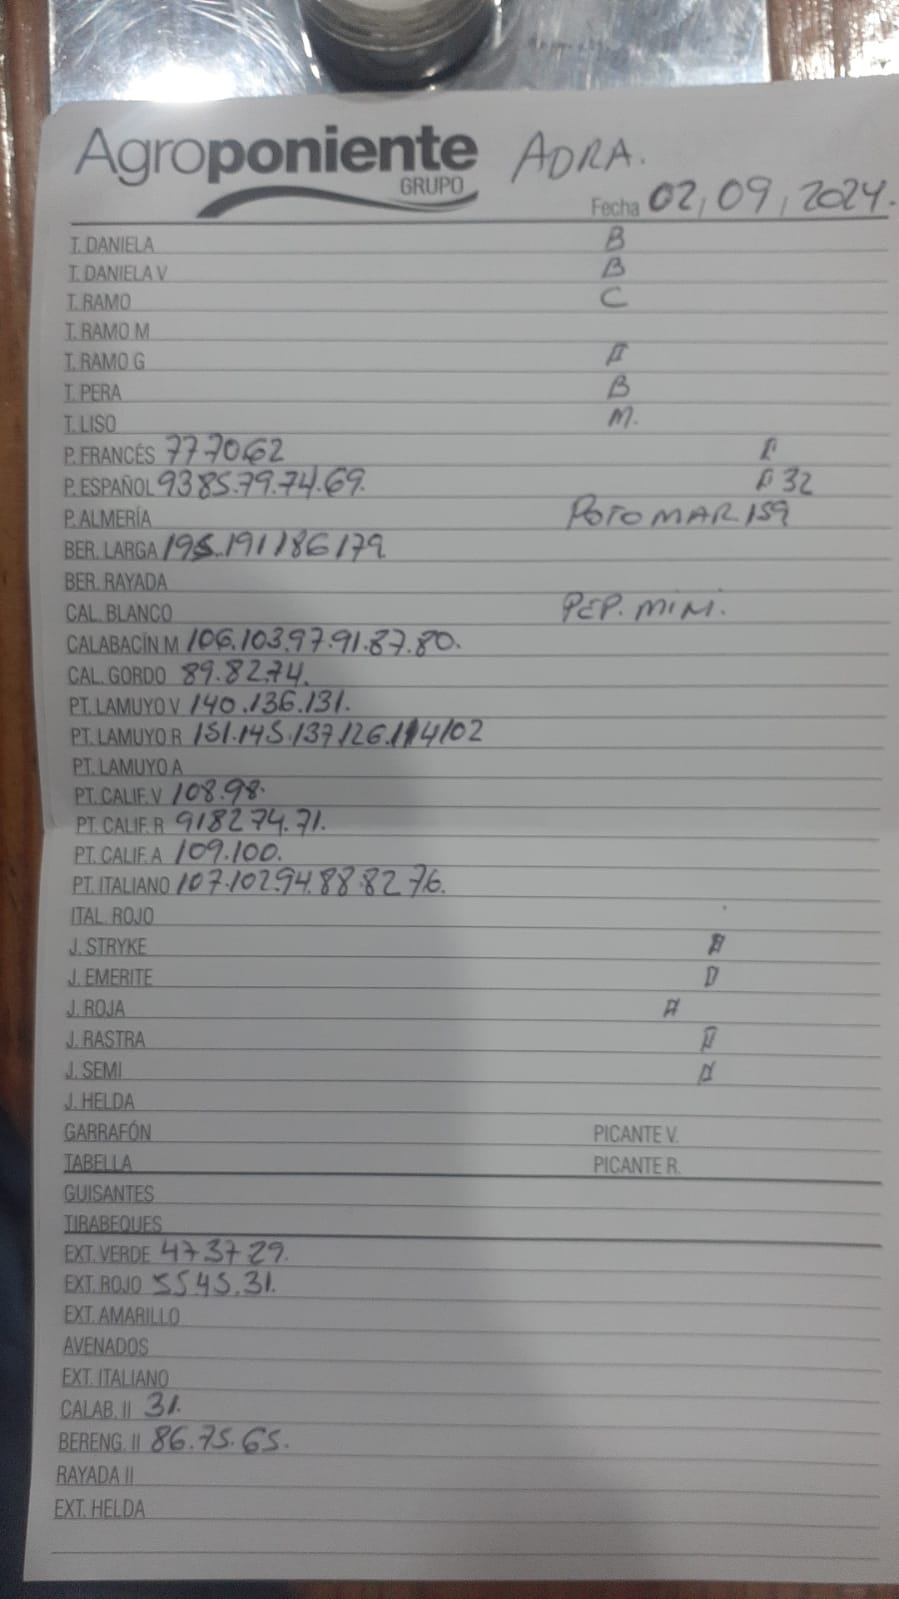 Agroponiente ADRA.
GRUPO
Fecha 02,09,2024.
T. DANIELA B
T. DANIELA V B
T. RAMO C
T. RAMO M
T. RAMO G
T. PERA B
T. LISO M.
P. FRANCÉS 77.70.62
P. ESPAÑOL 93 85.79.74.69. 32
P. ALMERÍA POTO MAR 159
BER. LARGA 195.191186179
BER. RAYADA
CAL. BLANCO PEP. MINI.
CALABACÍN M 106.103.97.91.87.80.
CAL. GORDO 89.82.74.
PT. LAMUYO V 140.136.131.
PT. LAMUYO R 151.145.137.126.114102
PT. LAMUYO A
PT. CALIF. V 108.98.
PT. CALIF. R 9182 74.71.
PT. CALIF. A 109.100.
PT. ITALIANO 107.102.94.88.82 76.
ITAL. ROJO
J. STRYKE
J. EMERITE
J. ROJA
J. RASTRA
J. SEMI
J. HELDA
GARRAFÓN PICANTE V.
TABELLA PICANTE R.
GUISANTES
TIRABEQUES
EXT. VERDE 47 37 29.
EXT. ROJO 55 45.31.
EXT. AMARILLO
AVENADOS
EXT. ITALIANO
CALAB. II 31.
BERENG. II 86.75.65.
RAYADA II
EXT. HELDA